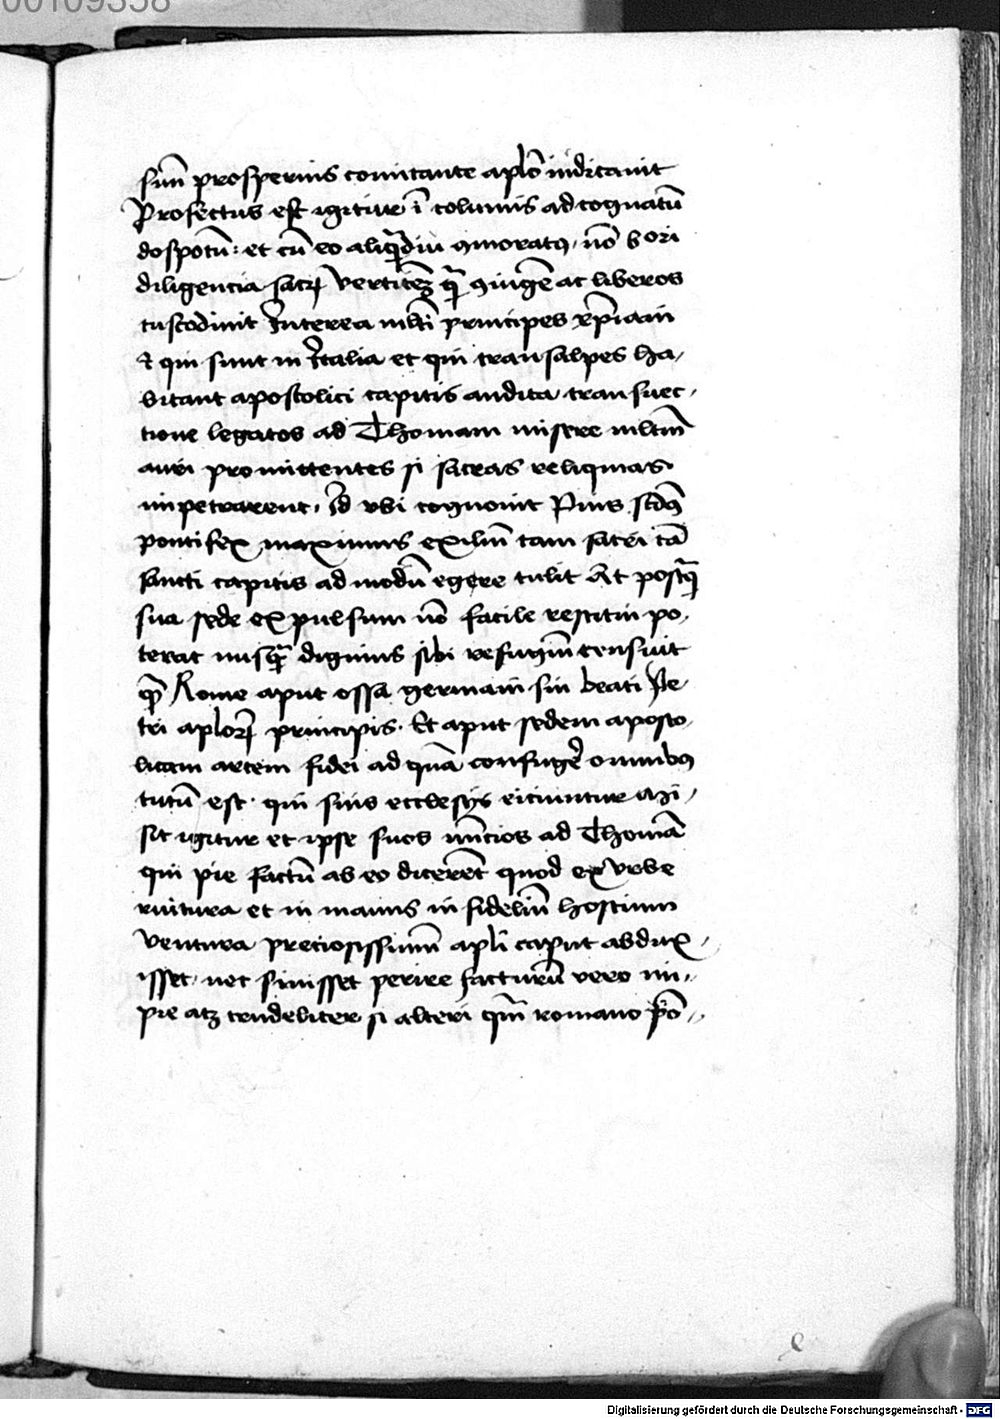 00109358
sum prosperius comitante aplo iudicauit
Profectus est igitur ī columis ad cognatū
dospotū: et cū eo aliqādiu ꝯmoratꝰ, nō bori
diligencia sacrꝫ verticē qā ꝯiugē ac liberos
tuscodiuit Interea mlti principes xp̄iam
& qui sunt in Italia et qui transalpes ha,
bitant apostolici capitis audita transuec,
tione legatos ad Thomam misere mltm̄
auri promittentes si sacras reliquias
impetrarent, Id vbi cognouit Pius scdꝰ
pontifex maximus exiliū tam sacri tā
sancti capitis ad modū egere tulit At postqā
sua sede expulsum nō facile restitui po,
terat nusqā dignius sibi refugiū censuit
qā Rome aput ossa germani sui beati Pe
tri aploꝝ principis. Et aput sedem aposto
licam arcem fidei ad quā confugē omnibꝰ
tutū est. qui suis ecclesiis eiciuntur Mi,
sit igitur et ipse suos nūcios ad Thomā
qui pie factū ab eo dicerēt quod ex vrbe
ruitura et in manus in fideliū hostium
ventura preciosissimū apli caput abdux,
isset, nec siuisset perire facturū vero im,,
pie atꝫ crudeliter si alteri qām romano pō,,
e
Digitalisierung gefördert durch die Deutsche Forschungsgemeinschaft - DFG